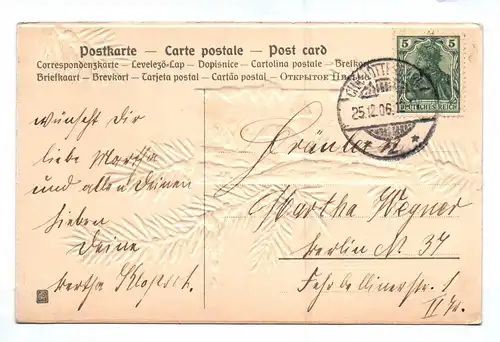 Postkarte – Carte postale – Post card
Correspondenzkarte – Levelező-Lap – Dopisnice – Cartolina postale – Brefkort
Briefkaart – Brevkort – Tarjeta postal – Cartão postal – Открытое
5 5
DEUTSCHES REICH
25.12.06.
wünscht Dir
liebe Martha
und allen Deinen
Lieben
Deine
Bertha
Fräulein
Martha Wegner
Berlin N. 37
Fehrbellinerstr. 1
II Tr.